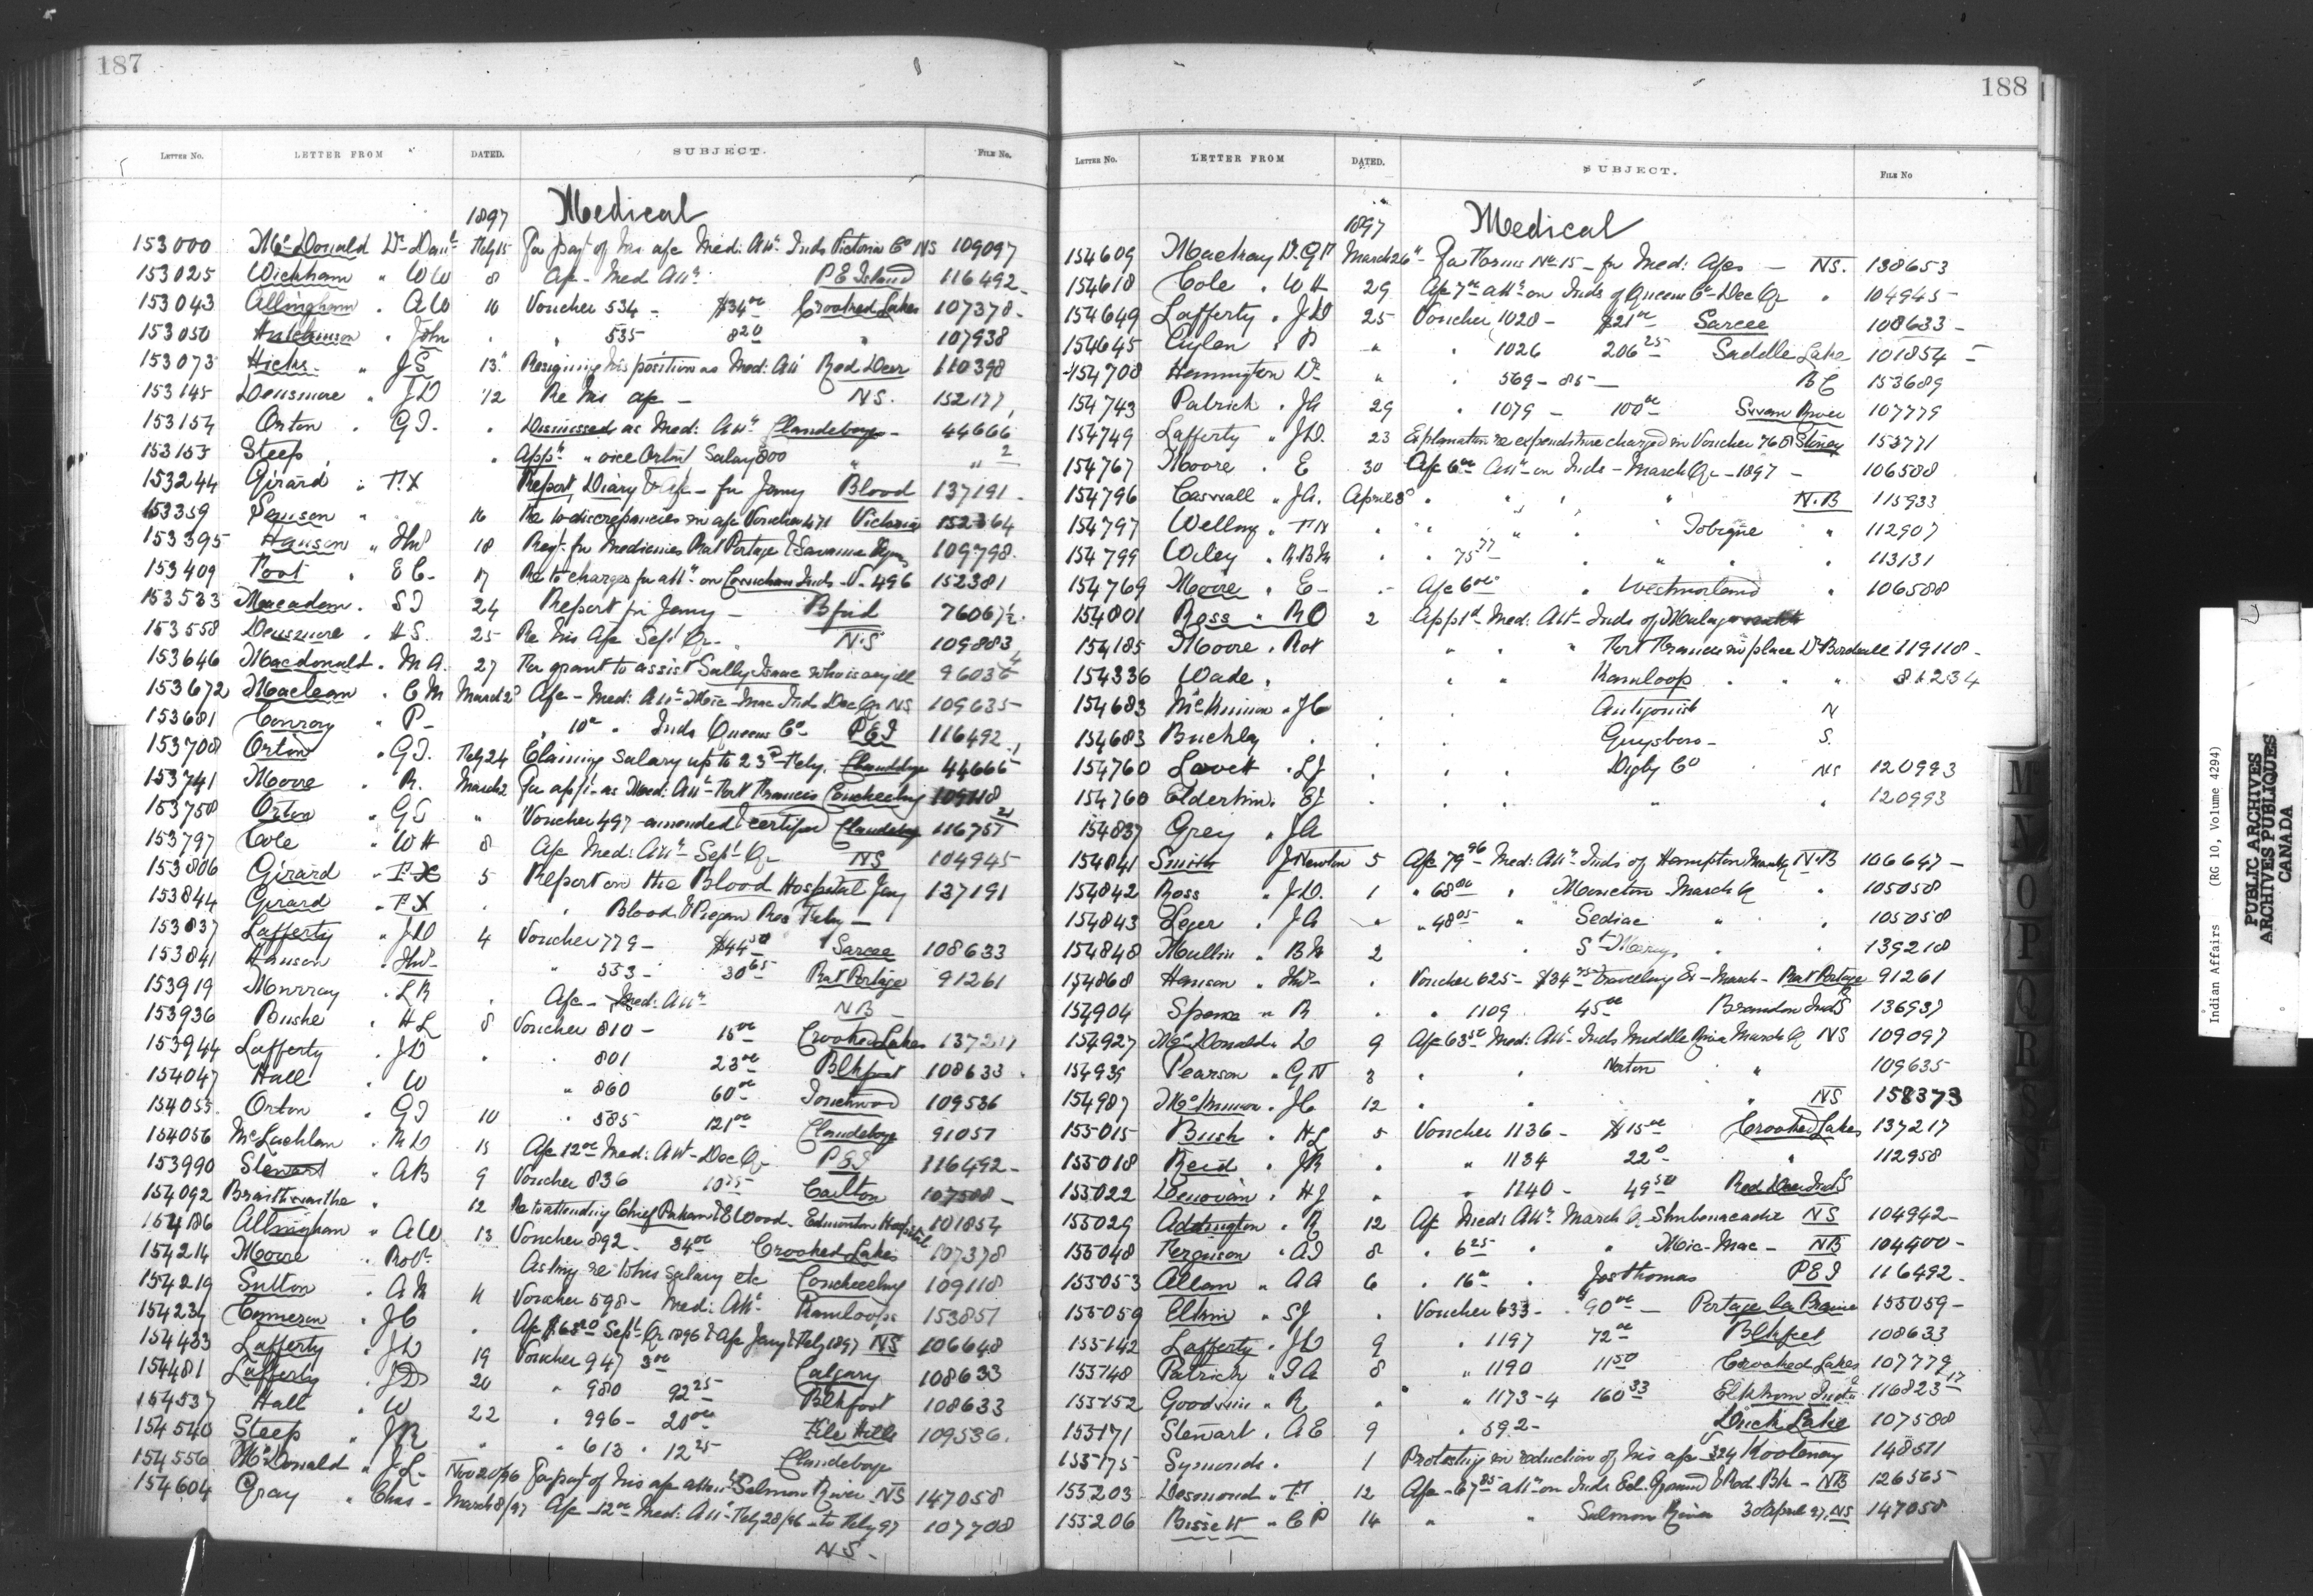 187
LETTER NO. LETTER FROM DATED. SUBJECT. FILE NO.
1897 Medical
153000 McDonald Dr Danl Feby 15 For payt of his a/c Med: Att: Inds Victoria Co NS 109097
153025 Wickham " WW 8 A/c - Med Att: P E Island 116492
153043 Allingham " AW 10 Voucher 534 - $34.00 Crooked Lakes 107378
153050 Hutchinson " John " " 535 8.20 " 107938
153073 Hicks " JS 13 Resigning his position as Med: Att Red Deer 110398
153145 Densmore " JD 12 Re his a/c - NS. 152177
153154 Orton " GT. " Dismissed as Med: Att: Clandeboye - 44666
153153 Steep " " Appt " vice Orton Salary 800 " " 2
153244 Girard " FX Report, Diary & a/c - for Jany Blood 137191
153359 " 16 Re to discrepancies in a/c Voucher 471 Victoria 152364
153395 Hanson " Thos 18 Reqt. for Medicines Rat Portage & Savanne 109798
153409 Foot " EC - 17 Re to charges for att: on Cowichan Inds - V. 496 152381
153533 Macadam " ST 24 Report for Jany - Bfrd 76067½
153558 Densmore " HS. 25 Re his a/c Sept Qr - N.S 109883
153646 Macdonald " MA. 27 For grant to assist Sally Isaac who is very ill 96036
153672 Maclean " CM March 2 A/c - Med: Att: Mic-Mac Inds Dec Qr NS 109635
153681 Conroy " P - " 10.00 " Inds Queens Co PEI 116492
153708 Orton " GT. Feby 24 Claiming Salary up to 23rd Feby. Clandeboye 44666
153741 Moore " R. March 2 For appt. as Med: Att: Fort Francis Coucheeching 109118
153758 Orton " GT " Voucher 497 - amended & certified Clandeboye 116757
153797 Cole " WH 8 A/c Med: Att: Sept. Qr NS 104945
153806 Girard " FX 5 Report on the Blood Hospital Jany 137191
153844 Girard " FX " " Blood & Piegan Res Feby -
153837 Lafferty " JD 4 Voucher 779 - $44.50 Sarcee 108633
153841 Hanson " Thos " 553 - 30.65 Rat Portage 91261
153919 Murray " LR " A/c - Med: Att: NB -
153936 Bushe " HL 8 Voucher 810 - 15.00 Crooked Lakes 137217
153944 Lafferty " JD " " 801 23.00 Blkfoot 108633
154047 Hall " W " 860 60.00 Touchwood 109536
154055 Orton " GT 10 " 585 121.00 Clandeboye 91057
154056 McLachlan " RD 15 A/c 12.00 Med: Att - Dec Qr PEI 116492 -
153990 Stewart " AB 9 Voucher 836 10.75 Carlton 107508 -
154092 Braithwaithe " 12 Re to attending Chief & E Wood - Edmonton Hospital 101854
154186 Allingham " AW 13 Voucher 892 - 34.00 Crooked Lakes 107378
154214 Moore " Robt Asking re to his salary etc Coucheeching 109118
154219 Sutton " AM 11 Voucher 598 - Med: Att: Kamloops 153851
154234 Cameron " JC " A/c $68.20 Sept. Qr 1896 & A/c Jany & Feby 1897 NS 106648
154433 Lafferty " JD 19 Voucher 947 3.00 Calgary 108633
154481 Lafferty " JD 20 " 980 92.25 Blkfoot 108633
154537 Hall " W 22 " 996 - 20.00 File Hills 109536
154540 Steep " JR " " 613 " 12.25 Clandeboye
154556 McDonald " JL - Nov 20/96 For payt of his a/c attn Salmon River NS 147058
154604 Gray " Chas - March 8/97 A/c 12.00 Med: Att: Feby 28/96 to Feby 97 107708
NS -
188
LETTER NO. LETTER FROM DATED. SUBJECT. FILE NO
1897 Medical
154609 Mackay Dr. March 26 For Forms No 15 - for Med: A/cs - NS. 138653
154618 Cole " WH 29 A/c 7.00 att: on Inds of Queens Co - Dec Qr " 104945
154649 Lafferty " JD 25 Voucher 1028 - $21.00 Sarcee 108633 -
154645 Aylen " P " " 1026 206.25 Saddle Lake 101854
154708 Hannington Dr " " 569 - 85 - BC 153689
154743 Patrick " JA 29 " 1079 - 100.00 Swan River 107779
154749 Lafferty " JD. 23 Explanation re expenditure charged in Voucher 768 Stoney 153771
154767 Moore " E 30 A/c 6.00 Att: on Inds - March Qr - 1897 - 106588
154796 Caswall " JA. April 3 " " " " N.B 115933
154797 Welling " " " " " Tobique " 112907
154799 Wiley " RBM " " 75.77 " " " 113131
154769 Moore " E - A/c 6.00 " Westmorland " 106588
154801 Ross " RO 2 Apptd Med: Att - Inds of
154185 Moore " Rot " " " Fort Francis in place Dr 119118 -
154336 Wade " " " Kamloops " " " 81234
154683 McKinnon " JC " " Antigonish N
154683 Buckley " " " " Guysboro - S.
154760 Lovett " LJ " " " Digby Co NS 120993
154760 Elderkin " EJ " " " " " 120993
154837 Grey " JA
154841 Smith J Newton 5 A/c 79.96 Med: Att: Inds of Hampton March Qr NB 106647 -
154842 Ross " JD. 1 " 68.00 " Moncton March Qr " 105058
154843 Leger " JA " " 48.05 " Sediac " " 105058
154848 Mullin " BM 2 " St Marys " " 139218
154868 Hanson " Thos " Voucher 625 - $34.75 Traveling Ex - March - Rat Portage 91261
154904 Spence " R " " 1109 45.00 Brandon Inds 136937
154927 McDonald " D 9 A/c 63.50 Med: Att: Inds Middle River March Qr NS 109097
154939 Pearson " GN 8 " " Norton " 109635
154987 McKinnon " JC 12 " " " NS 158373
155015 Bush " HL 5 Voucher 1136 - $15.00 Crooked Lakes 137217
155018 Reid " JR " " 1134 22.0 " 112958
155022 Denovan " HJ " " 1140 - 49.50 Red Deer Inds 
155029 Addington " R 12 A/c Med: Att: March Qr Shubenacadie NS 104942 -
155048 Ferguson " AJ 8 " 6.25 " " Mic-Mac - NB 104400 -
155053 Allan " AA 6 " 16.00 " Jos Thomas PEI 116492 -
155059 Elkin " SJ " Voucher 633 - $90.00 - Portage la Prairie 155059 -
155142 Lafferty " JD 9 " 1197 72.00 Blkfeet 108633
155148 Patrick " TA 8 " 1190 11.50 Crooked Lakes 107779
155152 Goodwin " R " " 1173-4 160.33 Elkhorn 116823
155171 Stewart " AE 9 " 592 - Duck Lake 107588
155175 Symonds " 1 Protesting in reduction of his a/c 324 Kootenay 148511
155203 Desmond " F 12 A/c - 67.85 att: on Inds Eel Ground & Red Bk - NB 126565
155206 Bissett " CP 14 " " Salmon River 30 April 97 NS 147058
M N O P Q R S T
Indian Affairs (RG 10, Volume 4294)
PUBLIC ARCHIVES
ARCHIVES PUBLIQUES
CANADA